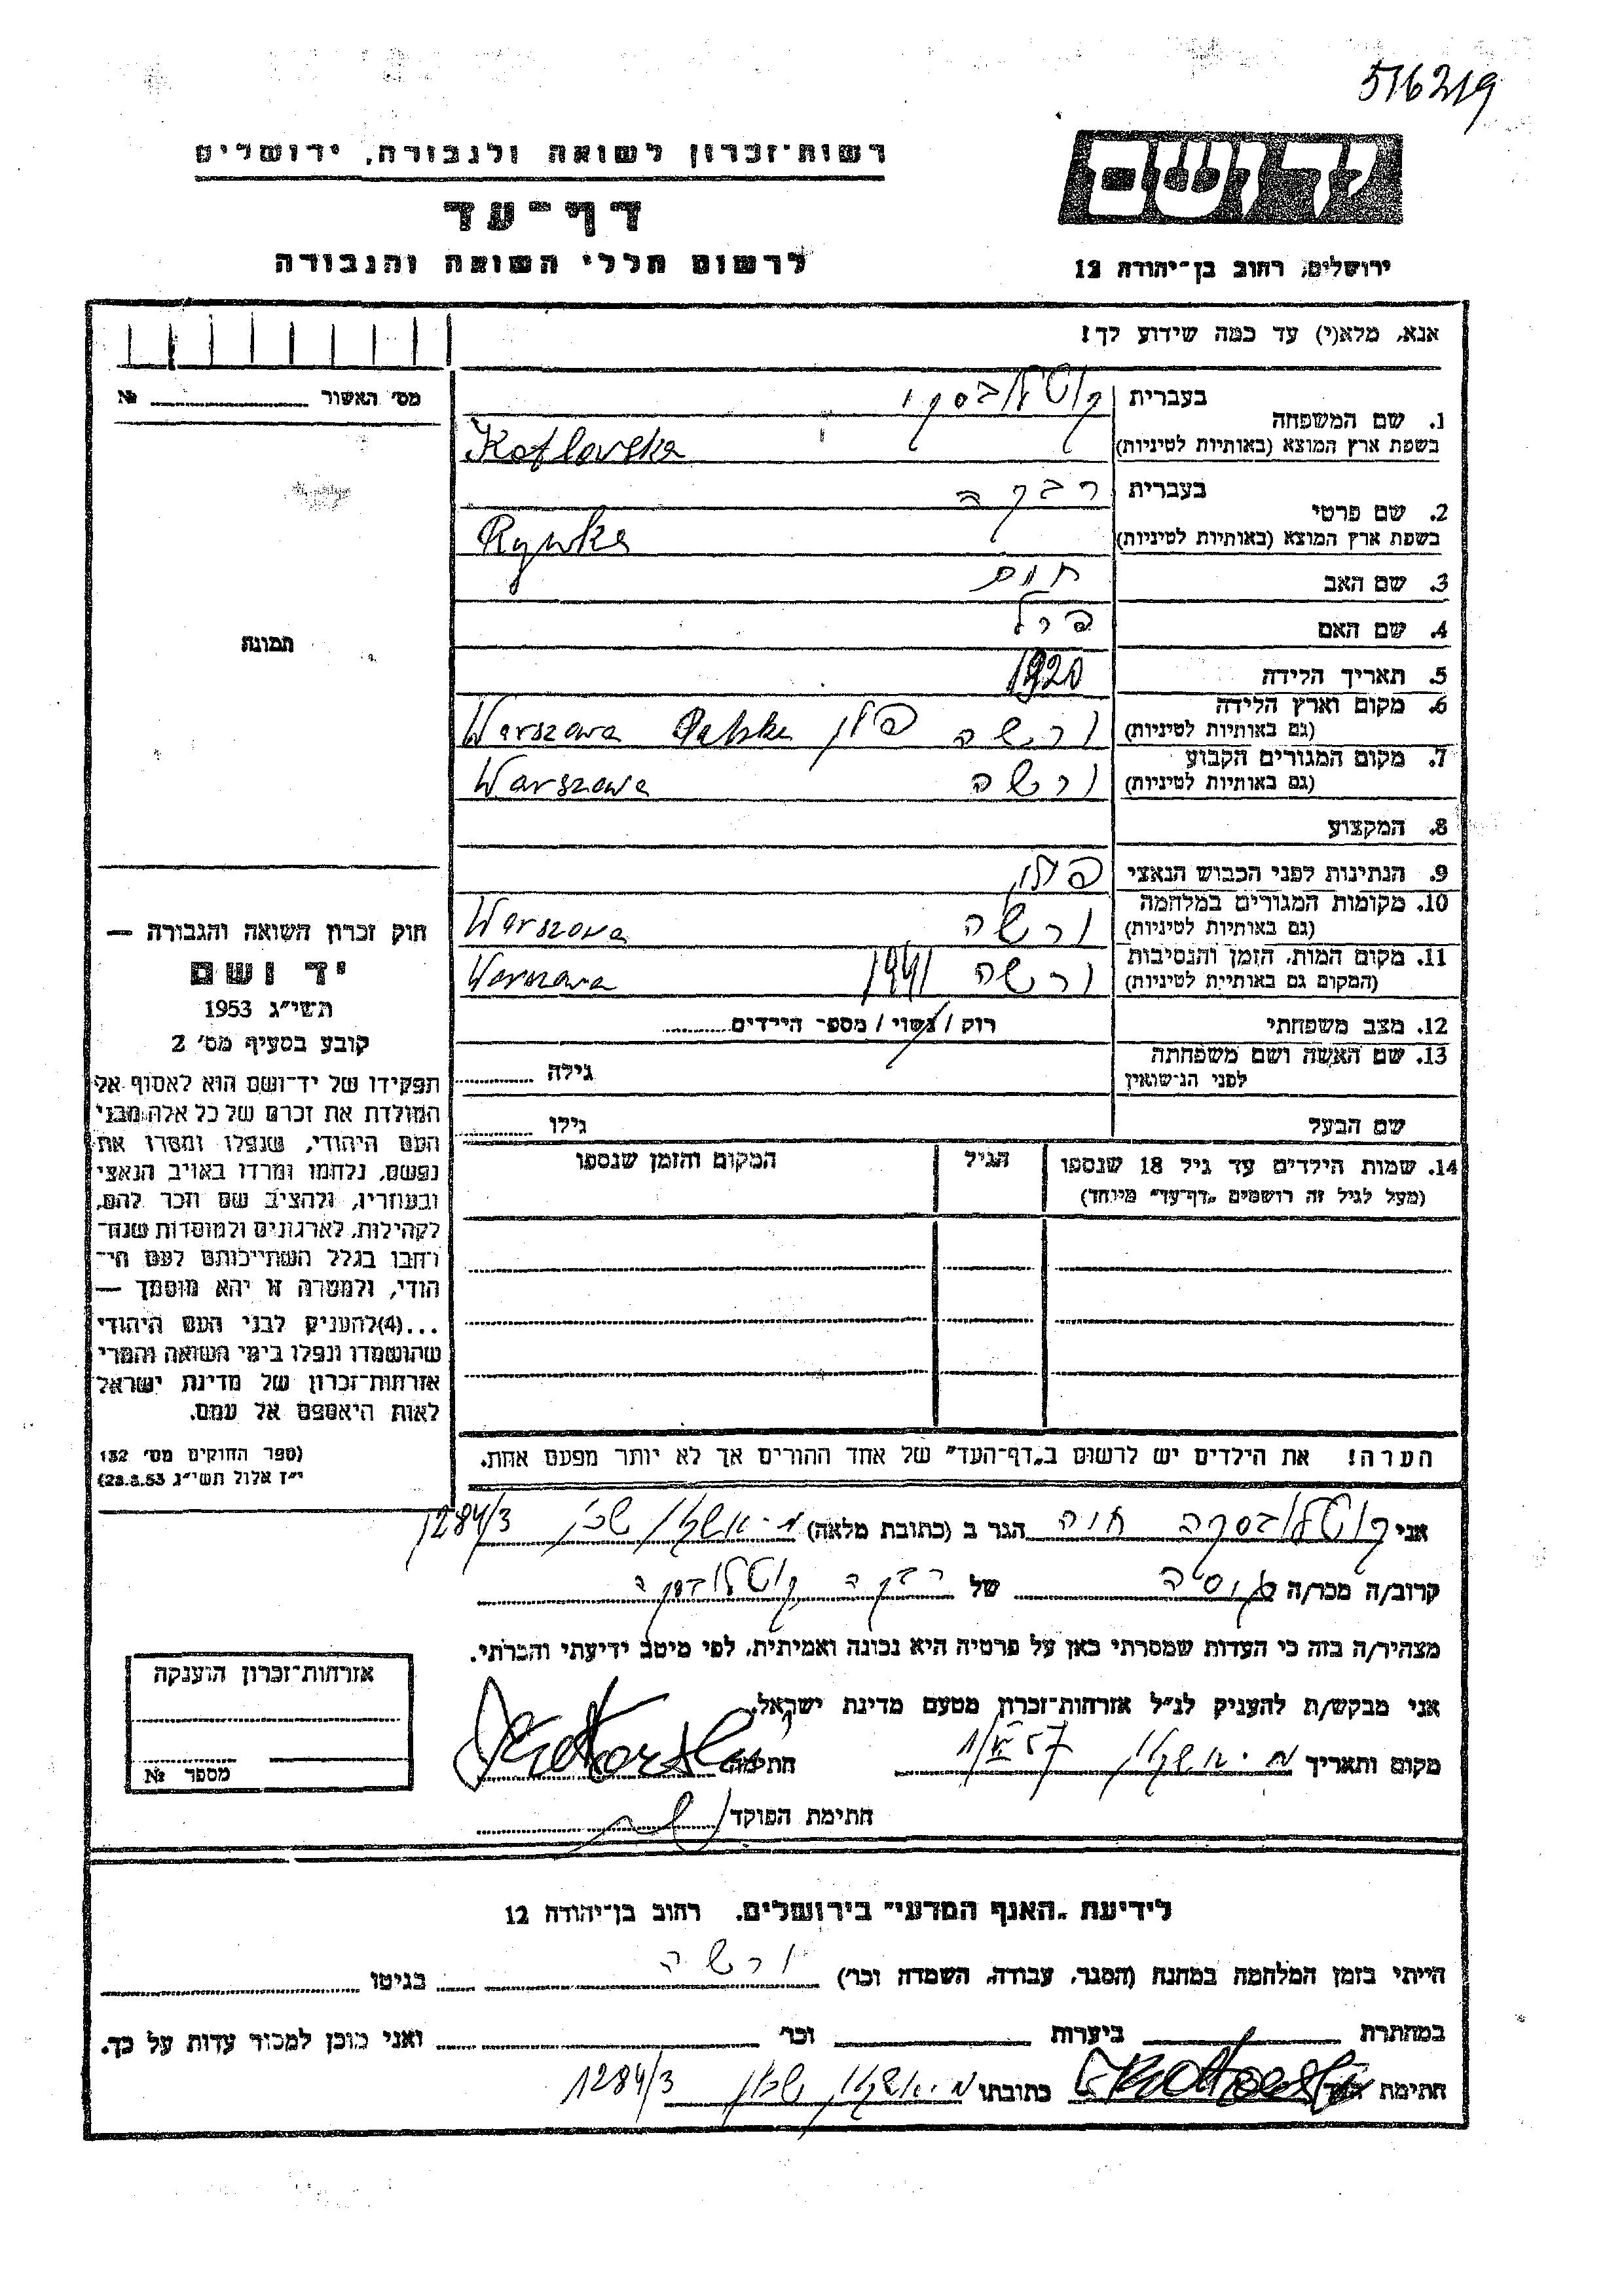 516219
רשות־זכרון לשואה ולגבורה, ירושלים
דף־עד
לרשום חללי השואה והגבורה
יד ושם
ירושלים, רחוב בן־יהודה 12
אנא, מלא(י) עד כמה שידוע לך!
מס׳ האשור № 
1. שם המשפחה
בעברית קוטלובסקי
בשפת ארץ המוצא (באותיות לטיניות) Kotlovska
2. שם פרטי
בעברית רבקה
בשפת ארץ המוצא (באותיות לטיניות) Rywka
3. שם האב חיים
4. שם האם פרל
5. תאריך הלידה 1920
6. מקום וארץ הלידה
(גם באותיות לטיניות) ורשה פולין Polska Warszawa
7. מקום המגורים הקבוע
(גם באותיות לטיניות) ורשה Warszawa
8. המקצוע
9. הנתינות לפני הכבוש הנאצי פולין
10. מקומות המגורים במלחמה
(גם באותיות לטיניות) ורשה Warszowa
11. מקום המות, הזמן והנסיבות
(המקום גם באותיות לטיניות) ורשה 1941 Warszawa
12. מצב משפחתי רוק / נשוי / מספר הילדים
13. שם האשה ושם משפחתה
לפני הנישואין
גילה
שם הבעל
גילו
14. שמות הילדים עד גיל 18 שנספו
(מעל לגיל זה רושמים „דף־עד” מיוחד)
הגיל
המקום והזמן שנספו
תמונה
חוק זכרון השואה והגבורה —
יד ושם
תשי״ג 1953
קובע בסעיף מס׳ 2
תפקידו של יד־ושם הוא לאסוף אל
המולדת את זכרם של כל אלה מבני
העם היהודי, שנפלו ומסרו את
נפשם, נלחמו ומרדו באויב הנאצי
ובעוזריו, ולהציב שם וזכר להם,
לקהילות, לארגונים ולמוסדות שנח־
רחבו בגלל השתייכותם לעם הי־
הודי, ולמטרה זו יהא מוסמך —
...(4) להעניק לבני העם היהודי
שהושמדו ונפלו בימי השואה והמרי
אזרחות־זכרון של מדינת ישראל
לאות היאספם אל עמם.
(ספר החוקים מס׳ 132
י״ז אלול תשי״ג 28.8.53)
הערה! את הילדים יש לרשום ב„דף־העד” של אחד ההורים אך לא יותר מפעם אחת.
אני קוטלובסקה חיה הגר ב (כתובת מלאה) מ. אשקלון שכון 1284/3
קרוב/ה מכר/ה גיסה של רבקה קוטלובסקה
מצהיר/ה בזה כי העדות שמסרתי כאן על פרטיה היא נכונה ואמיתית, לפי מיטב ידיעתי והכרתי.
אני מבקש/ת להעניק לנ״ל אזרחות־זכרון מטעם מדינת ישראל.
מקום ותאריך מ. אשקלון 57 חתימה
חתימת הפוקד
אזרחות־זכרון הוענקה
מספר №
לידיעת „האגף המדעי” בירושלים, רחוב בן־יהודה 12
הייתי בזמן המלחמה במחנה (הסגר, עבודה, השמדה וכו׳) ורשה בגיטו
במחתרת ביערות וכו׳ ואני מוכן למסור עדות על כך.
חתימת העד כתובתו מ. אשקלון שכון 1284/3